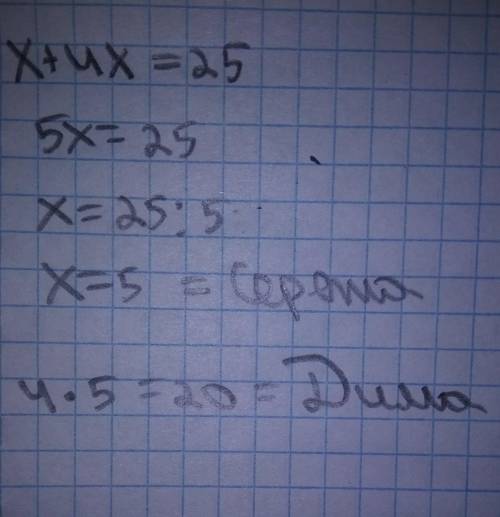 x+4x=25
5x=25
x=25:5
x=5 = Сережа
4·5=20= Дима